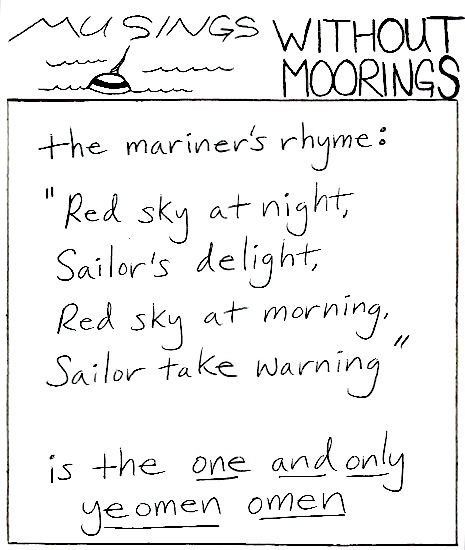 MUSINGS WITHOUT
MOORINGS
the mariner's rhyme:
"Red sky at night,
Sailor's delight,
Red sky at morning,
Sailor take warning"
is the one and only
yeomen omen